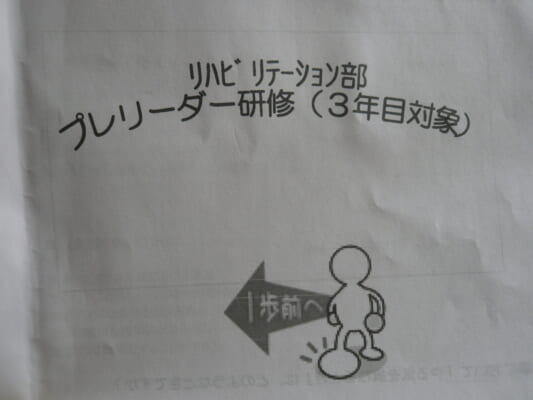 ﾘﾊﾋﾞﾘﾃｰｼｮﾝ部
プレリーダー研修（３年目対象）
1歩前へ